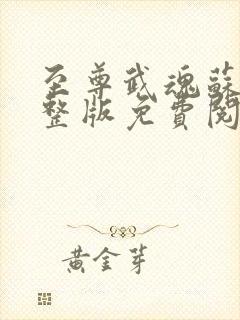 至尊武魂蘇
整版免費閱
黃金芽